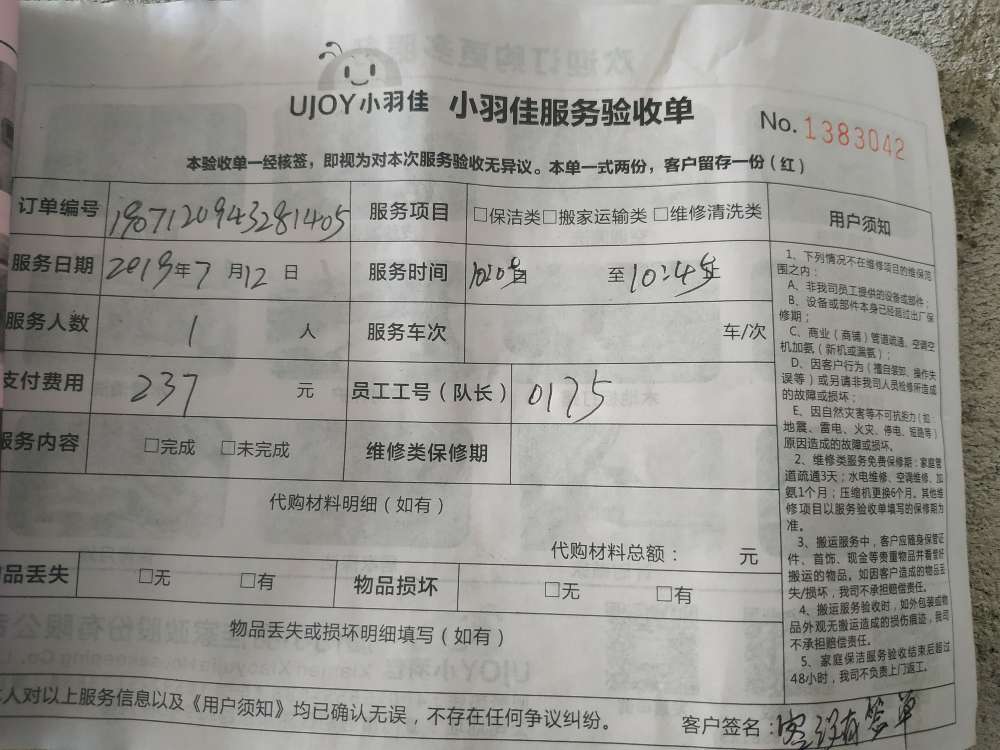 UJOY小羽佳 小羽佳服务验收单 No. 1383042
本验收单一经核签，即视为对本次服务验收无异议。本单一式两份，客户留存一份（红）
订单编号 1907120943281405 服务项目 □保洁类□搬家运输类 □维修清洗类
服务日期 2019年7月12日 服务时间 至10:45
服务人数 1 人 服务车次 车/次
支付费用 237 元 员工工号（队长） 0175
服务内容 □完成 □未完成 维修类保修期
代购材料明细（如有）
代购材料总额： 元
品丢失 □无 □有 物品损坏 □无 □有
物品丢失或损坏明细填写（如有）
人对以上服务信息以及《用户须知》均已确认无误，不存在任何争议纠纷。
客户签名：签单
用户须知
1、下列情况不在维修项目的维保范
围之内：
A、非我司员工提供的设备或部件；
B、设备或部件本身已经超过出厂保
修期；
C、商业（商铺）管道疏通、空调空
机加氨（新机或漏氨）；
D、因客户行为（擅自装卸、操作失
误等）或另请非我司人员检修所造成
的故障或损坏；
E、因自然灾害等不可抗力（如：
地震、雷电、火灾、停电、短路等）
原因造成的故障或损坏。
2、维修类服务免费保修期：家庭管
道疏通3天；水电维修、空调维修、加
氨1个月；压缩机更换6个月。其他维
修项目以服务验收单填写的保修期为
准。
3、搬运服务中，客户应随身保管证
件、首饰、现金等贵重物品并看管好
搬运的物品。如因客户造成的物品丢
失/损坏，我司不承担赔偿责任。
4、搬运服务验收时，如外包装或物
品外观无搬运造成的损伤痕迹，我司
不承担赔偿责任。
5、家庭保洁服务验收结束后超过
48小时，我司不负责上门返工。